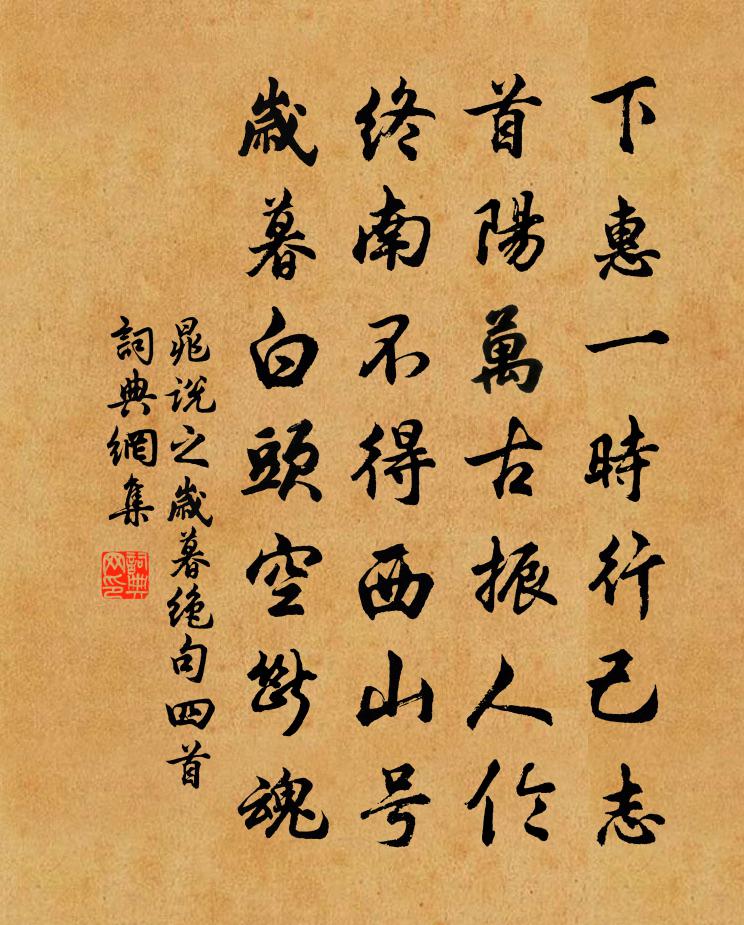 下惠一時行己志
首陽萬古振人伦
終南不得西山号
歲暮白頭空斷魂
晁説之歲暮絕句四首
詞典網集
詞典网印